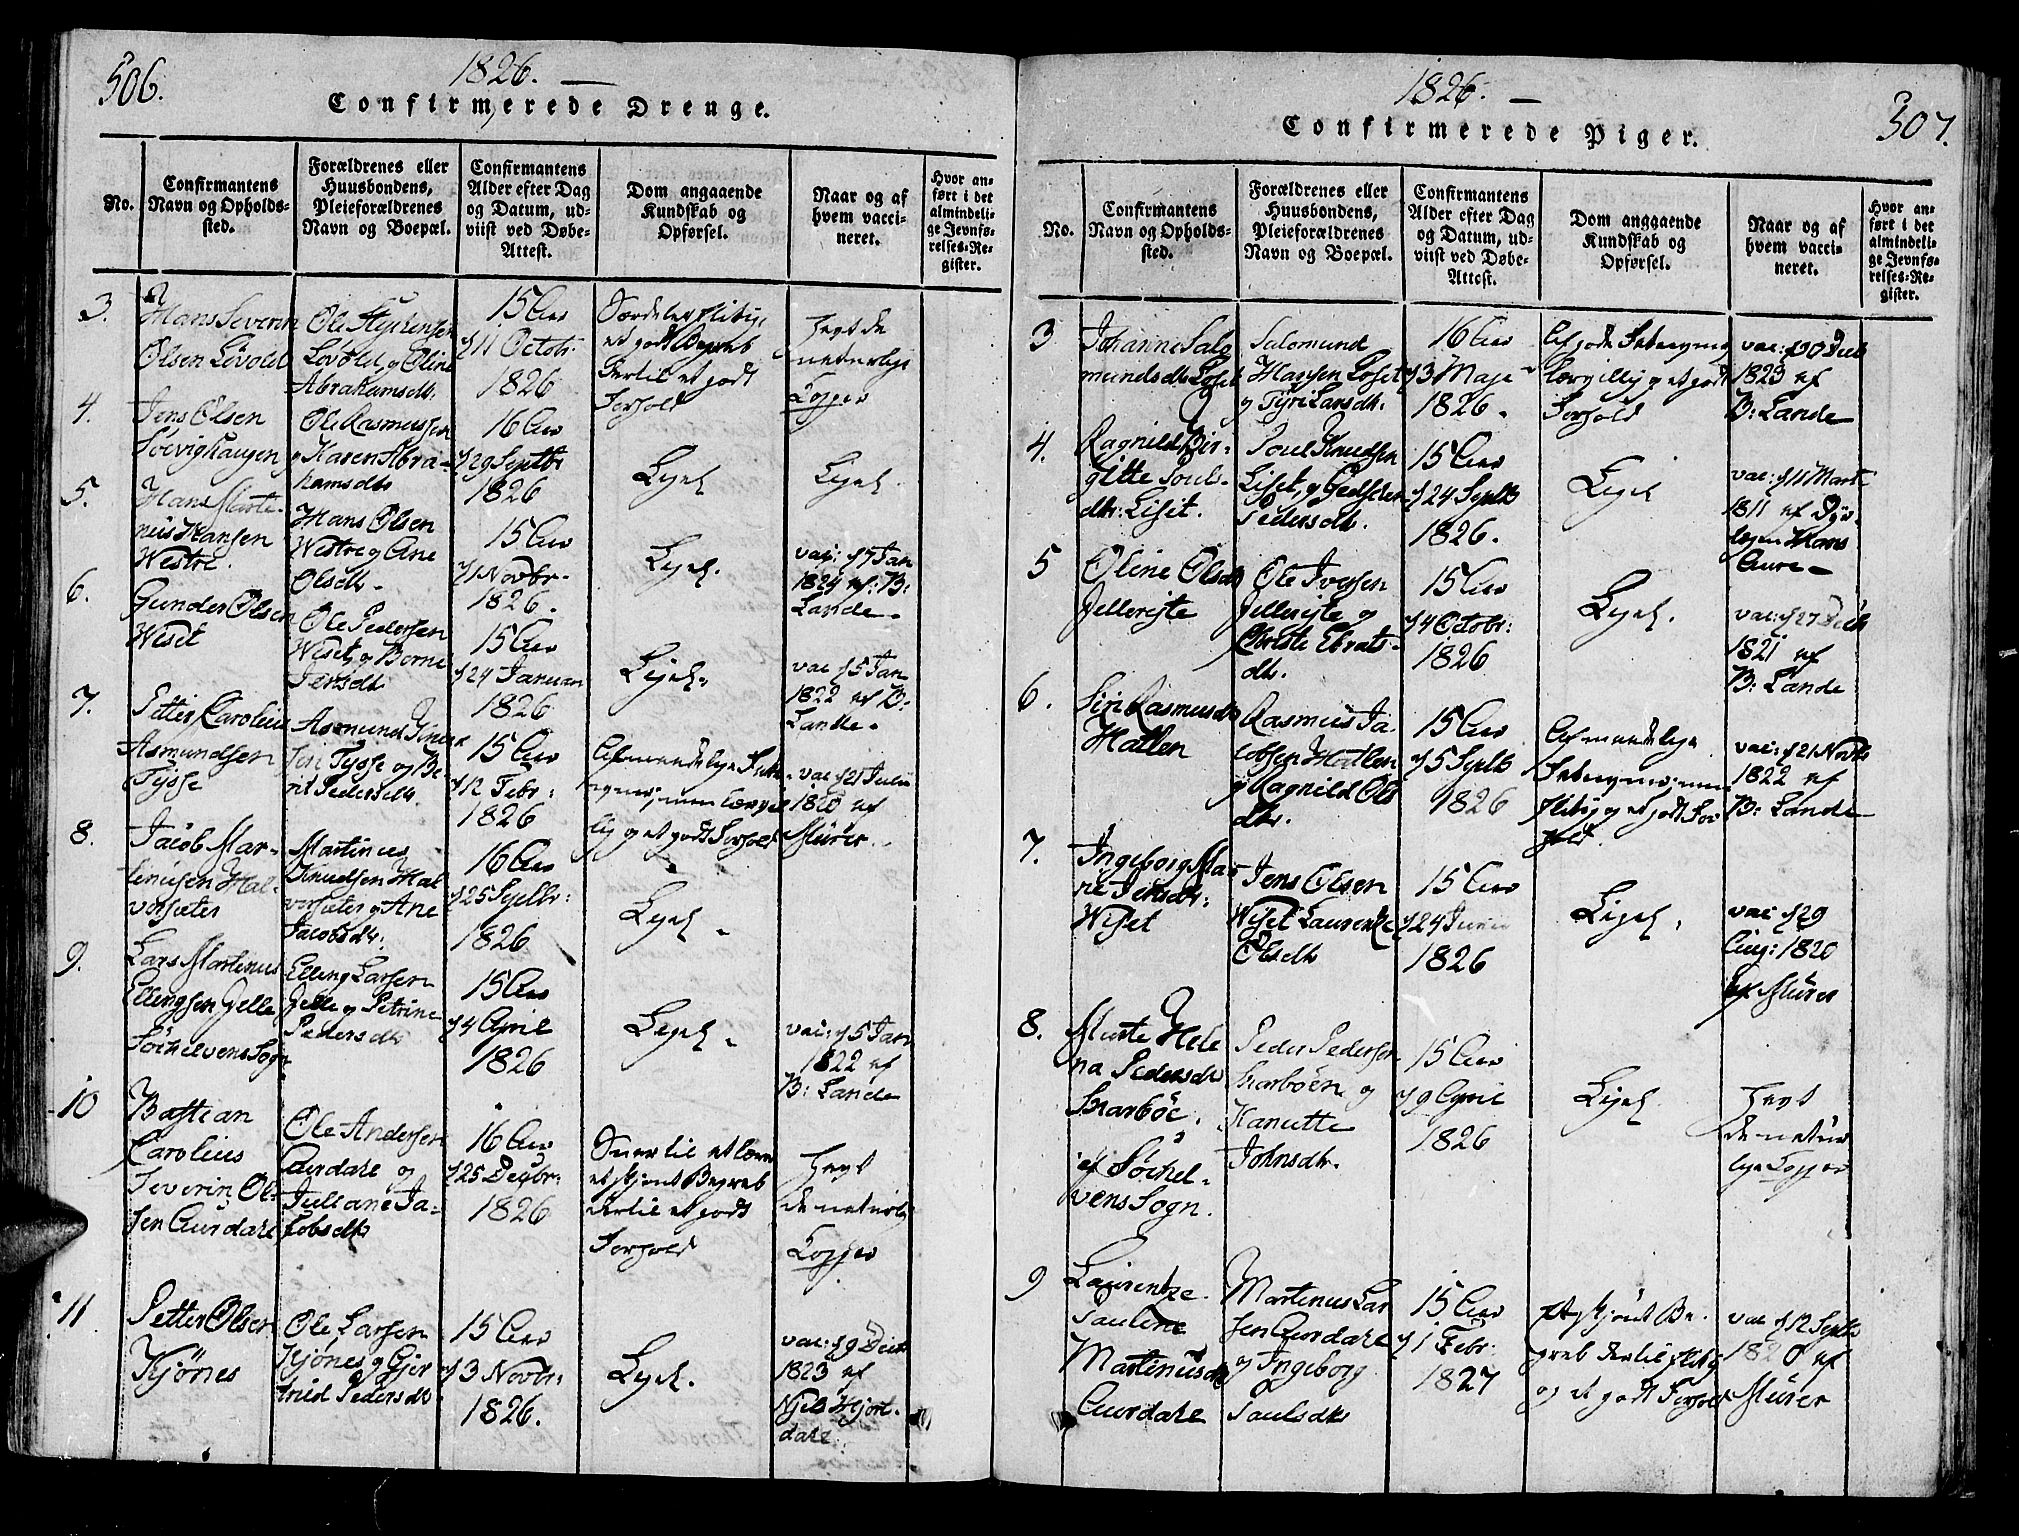 506.
1826. —
Confirmerede Drenge.
No.
Confirmantens Navn og Opholds-sted.
Forældrenes eller Huusbondens, Pleieforældrenes Navn og Boepæl.
Confirmantens Alder efter Dag og Datum, ud-viist ved Døbe-Attest.
Dom angaaende Kundskab og Opførsel.
Naar og af hvem vacci-neret.
Hvor an-ført i det almindeli-ge Jevnfø-relses-Re-gister.
3.
Hans Severin
Olsen Lövold
Ole
Lövold, og Oline
Abrahamsdtr.
15 Aar
d 11 Octobr:
1826
et godt Begreb
dertil et godt
Forhold
Havt de
naturlige
Kopper
4.
Jens Olsen
Soevighaugen
Ole Rasmussen
og Karen Abra-
hamsdtr
16 Aar
d 29 Septbr
1826
Ligel.
Ligel.
5.
Hans Marte-
nius Hansen
Westre.
Hans Olsen
Westre og Ane
Olsdtr.
15 Aar
d 1 Novbr.
1826.
Ligel.
vac: d 7 Jan
1824 af: B:
Lande.
6.
Gunder Olsen
Weset
Ole Pedersen
Weset, og Borne
Jensdtr
15 Aar
d 24 Januar
1826
Ligel.
vac d 5 Jan
1822 af B:
Lande.
7.
Petter Carolius
Asmundsen
Tysse
Asmund
Tysse og Be
rit Pedersdtr.
15 Aar
d 12 Febr:
1826
Almindelige
men lærvil
lig og et godt Forhold
vac d 21 Juli
1820 af
Mürer.
8.
Jacob Mar-
tinusen Mal-
vorsæter
Martinus
Knudsen Mal
vorsæter og Ane
Jacobsdtr:
16 Aar
d 25 Septbr:
1826
Ligel.
9.
Lars Martinus
Ellingsen Gjelle
Söchelvens Sogn
Elling Larsen
Gjelle og Petrine
Pedersdtr
15 Aar
d 4 April
1826
Ligel.
vac: d 5 Jan
1822 af
B: Lande
10
Bastian
Carolius
Severin Ol-
sen Aurdahl
Ole Andersen
Aurdale og
Juliane Ja-
cobsdtr
16 Aar
d 25 Decbr:
1826
et skjönt Begreb
dertil et godt
Forhold
Havt
de naturlig
Kopper
11
Petter Olsen
Kjönes
Ole Larsen
Kjönes og Gjer
trud Pedersdtr
15 Aar
d 3 Novbr:
1826.
Ligel.
vac: d 9 Decbr
1823 af
Niels Hjort-
dale.
1826. —
307.
Confirmerede Piger.
No.
Confirmantens Navn og Opholds-sted.
Forældrenes eller Huusbondens, Pleieforældrenes Navn og Boepæl.
Confirmantens Alder efter Dag og Datum, ud-viist ved Døbe-Attest.
Dom angaaende Kundskab og Opførsel.
Naar og af hvem vacci-neret.
Hvor an-ført i det almindeli-ge Jevnfø-relses-Re-gister.
3
Johanne Salo
mundsdtr Loset
Salomund
Hansen Loset
og Tyri Larsdtr.
16 Aar
d 3 Maje
1826.
Af gode
lærvillig og et godt
Forhold
vac:
1823 af
B: Lande
4.
Ragnild Bir-
gitte Pouls-
dtr: Liset.
Poul Knudsen
Liset, og
Pedersdtr.
15 Aar
d 24 Septb
1826.
Ligel
vac: d 11 Mart
1811 af
Hans
Aure —
5
Oline Olsdtr
Jelle
Ole Iversen
Jelle og
Christe
dtr.
15 Aar
d 4 Octobr:
1826
Ligel.
vac: d 27 Decb
1821 af
B: Lande
6.
Siri Rasmusdtr
Hatlen
Rasmus Ja
cobsen Hatlen
og Ragnild Ols
dtr.
15 Aar
d 5 Septb
1826
Almindelige
men
flitig og et godt For
hold.
vac: d 21 Novb
1822 af
B: Lande
7.
Ingeborg Ma-
rie Jensdtr:
Weset
Jens Olsen
Weset Laurentze
Olsdtr
15 Aar
d 24 Juni
1826
Ligel.
vac: d 29
Aug: 1820
af Mürer
8.
Marte Hele
na Pedersdtr
Skarböe.
af Söchel-
vens Sogn.
Peder Pedersen
Skarböen og
Hanutte
Johnsdtr.
15 Aar
d 9 April
1826
Ligel.
Havt
de natur
lige Kopper
9
Laurentze
Pauline
Martinusdtr
Aurdale
Martinus Lar
sen Aurdale
og Ingeborg
Paulsdtr
15 Aar
d 1 Febr:
1827
et skjönt Be-
greb dertil flitig
og et godt Forhold
vac d 12 Septb
1820 af
Mürer